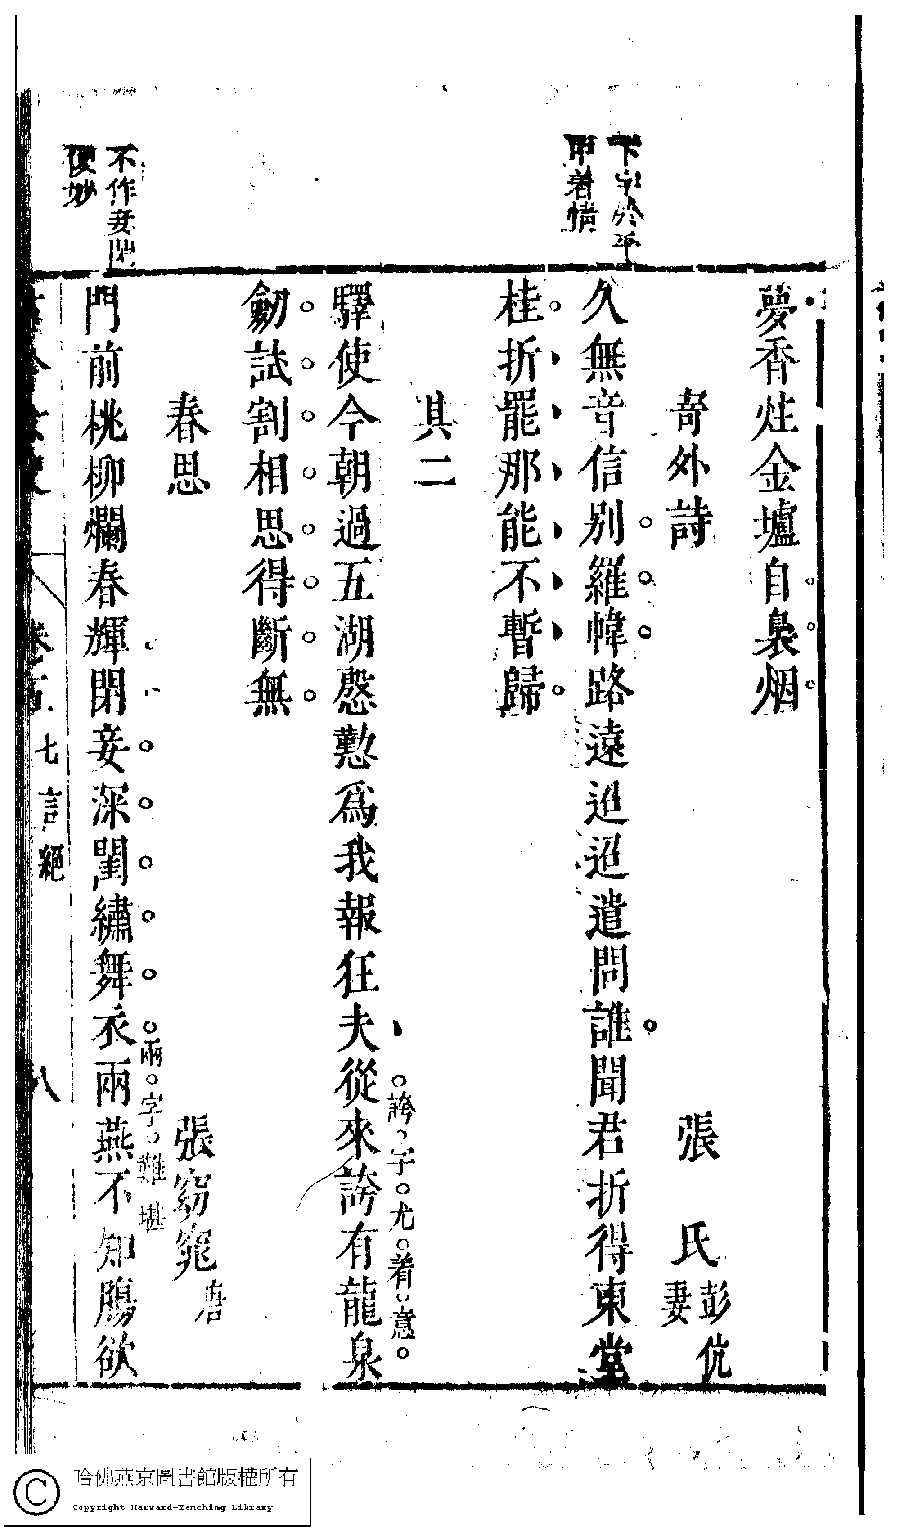 夢香炷金壚自裊烟
寄外詩
張氏
彭伉
妻
久無音信別羅幃路遠迢迢遣問誰聞君折得東堂
桂折罷那能不暫歸
其二
驛使今朝過五湖慇懃爲我報狂夫從來誇有龍泉
誇字尤着意
劒試割相思得斷無
春思
張窈窕
唐
門前桃柳爛春輝閉妾深閨繡舞衣兩燕不知膓欲
兩字難堪
不作妾閉
便妙
卷五
七言絕
八
哈佛燕京圖書館版權所有
Copyright Harvard-Yenching Library